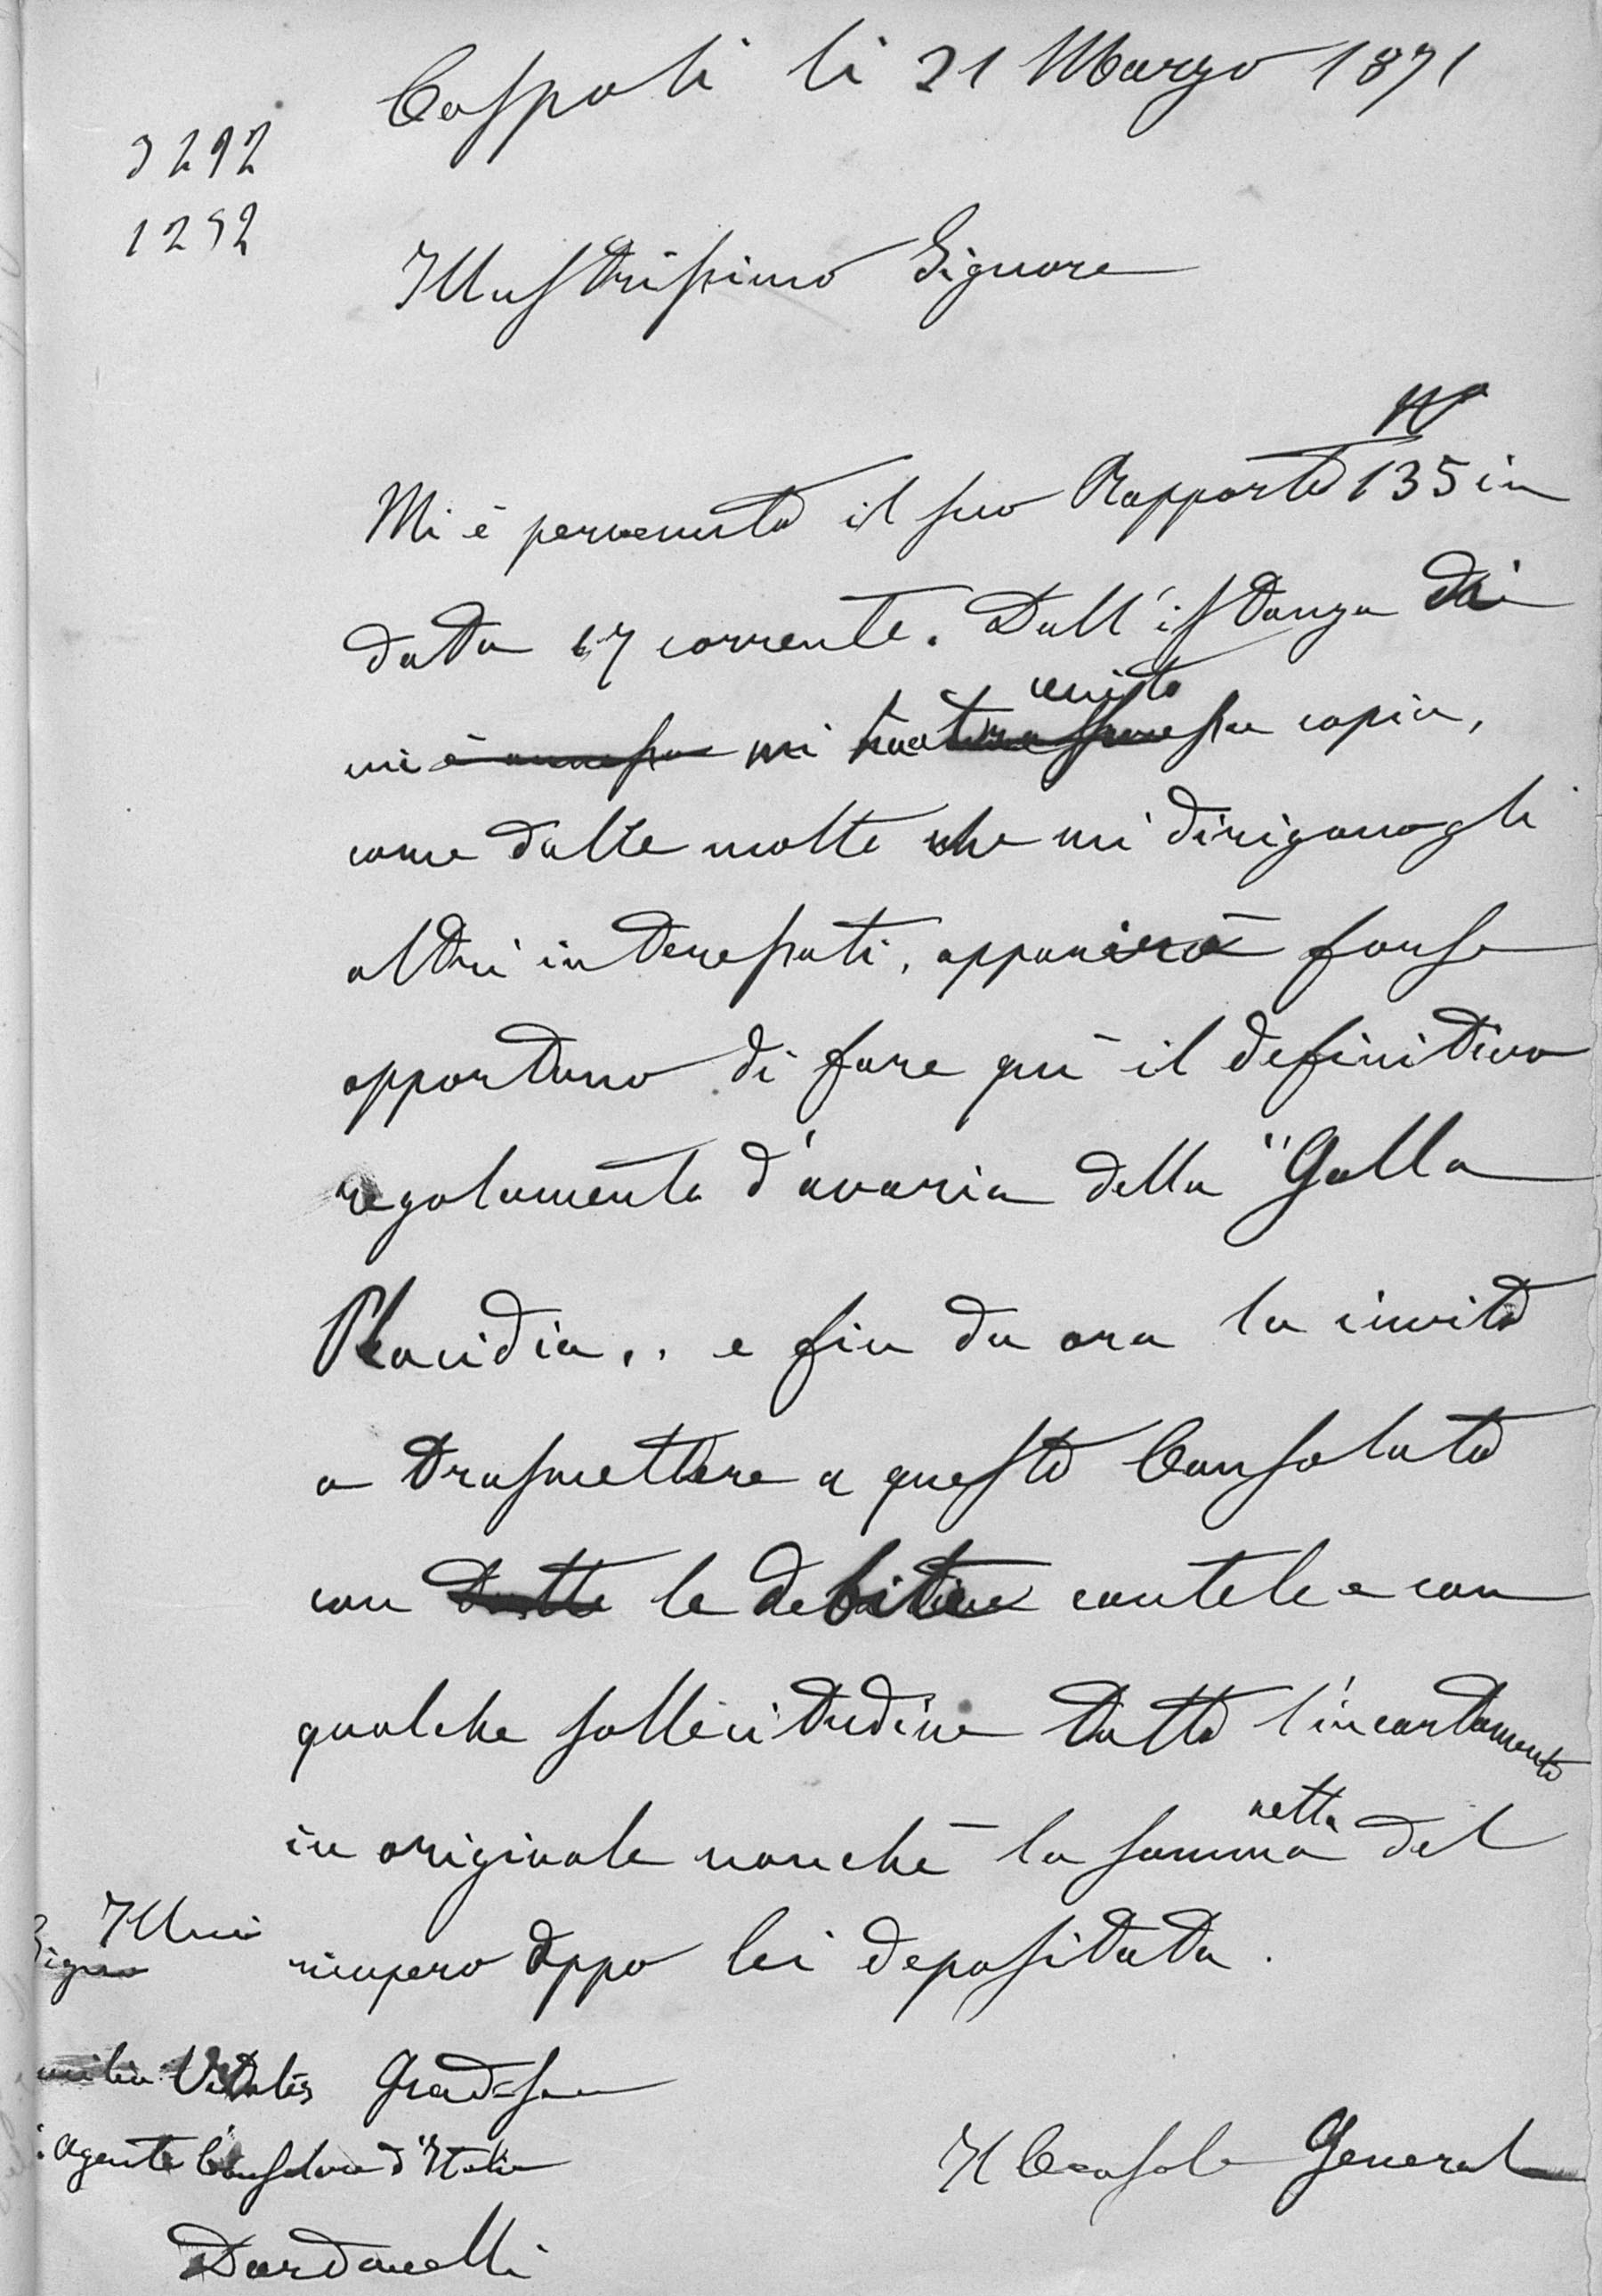 Cospoli li 21 Marzo 1871
3292
1252
Illustrissimo Signore
N°
Mi è pervenuto il suo Rapporto 135 in
data 17 corrente. Dall'istanza di
cui è annessa mi copia,
come dalle molte che mi dirigono gli
altri interessati, apparirà forse
opportuno di fare quì il definitivo
regolamento d'avaria della "Galla
Placidia,, e fin da ora la invito
a trasmettere a questo Consolato
con tutte le debite cautele e con
qualche sollecitudine tutto l'incartamento
in originale nonchè la somma netta del
ricupero appo lei depositata.
Illmo
Signor
Vitalis Grad=
Agente Consolare d'Italia
Dardanelli
Il Console General